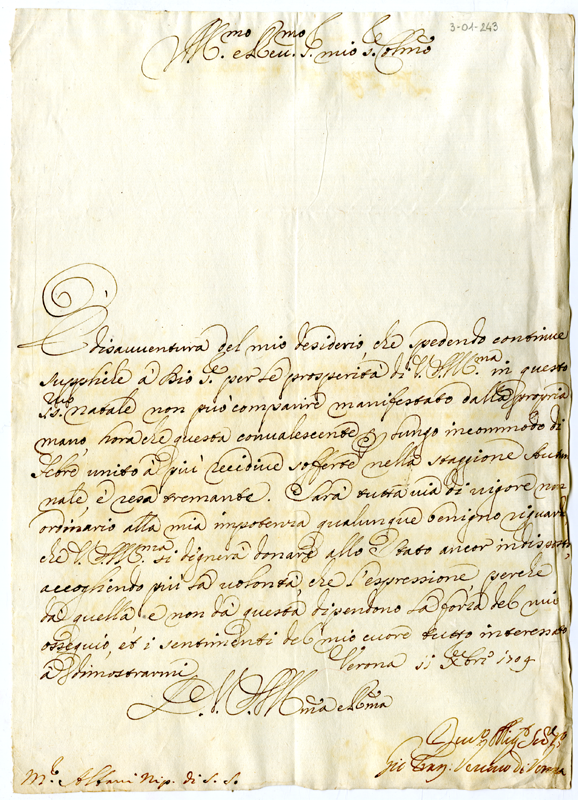 3-01-243
Ill.mo e Reu.mo S.r mio S.re Colmo
È disauuentura del mio desiderio, che spedendo continue
suppliche à Dio S.re per le prosperità di V. S. Ill.ma in questo
SS.mo natale non può comparire manifestato dalla propria
mano, hora che questa conualescente p lungo incommodo di
febre unito à più recidiue sofferte nella staggione Autun
nale, è resa tremante. Sarà tuttauia di uigore non
ordinario alla mia impotenza qualunque benigno riguardo
che V. S. Ill.ma si degnerà donare allo stato ancor indisposto,
accogliendo più la uolontà, che l'espressione, perche
da quella e non da questa dipendono la forza del mio
ossequio, et i sentimenti del mio cuore tutto interessato
à dimostrarmi
Verona 11 Xbri 1704
D. V. S. Ill.ma e R.ma
Gio Fran. Vescouo di Verona
M.r Albani Nip. di S. S.